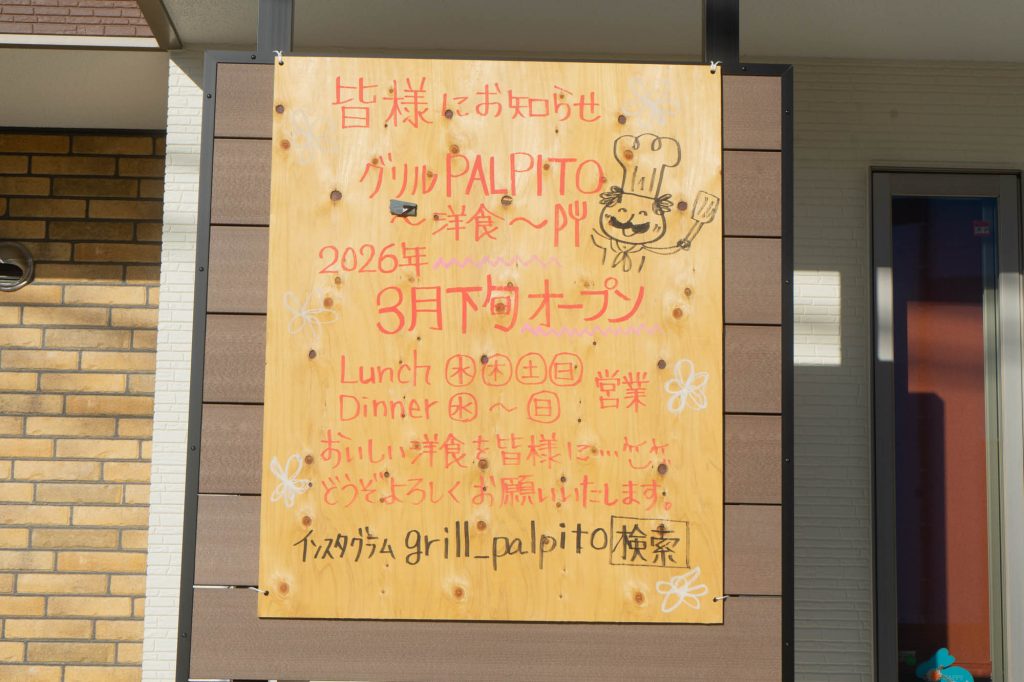 皆様にお知らせ
グリルPALPITO
～洋食～
2026年
3月下旬オープン
Lunch ㊌㊍㊏㊐ 営業
Dinner ㊌～㊐
おいしい洋食を皆様に…
どうぞよろしくお願いいたします。
インスタグラム grill_palpito 検索